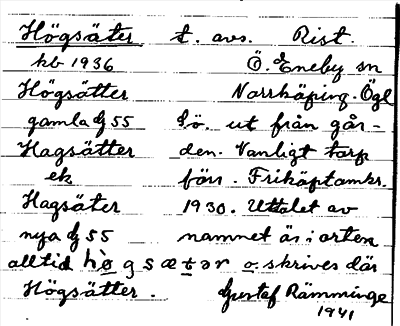 Högsäter t. avs. Rist.
kb 1936 Ö. Eneby sn
Högsätter Norrköping. Ögl
gamla 55 Lö. ut från går-
Hagsätter den. Vanligt torp
ek förr. Friköpt omkr.
Hagsäter 1930. Uttalet av
nya 55 namnet är i orten
alltid hògsætər o. skrives där
Högsätter. Gustaf Rämminge
1941